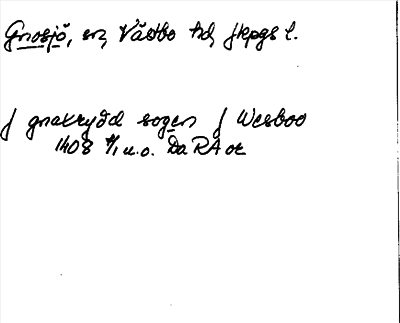 Gnosjö, sn, Västbo hd, Jkpgs l.
J gnakrydd sogen J Wesboo
1408 4/1 u.o. Da RA or